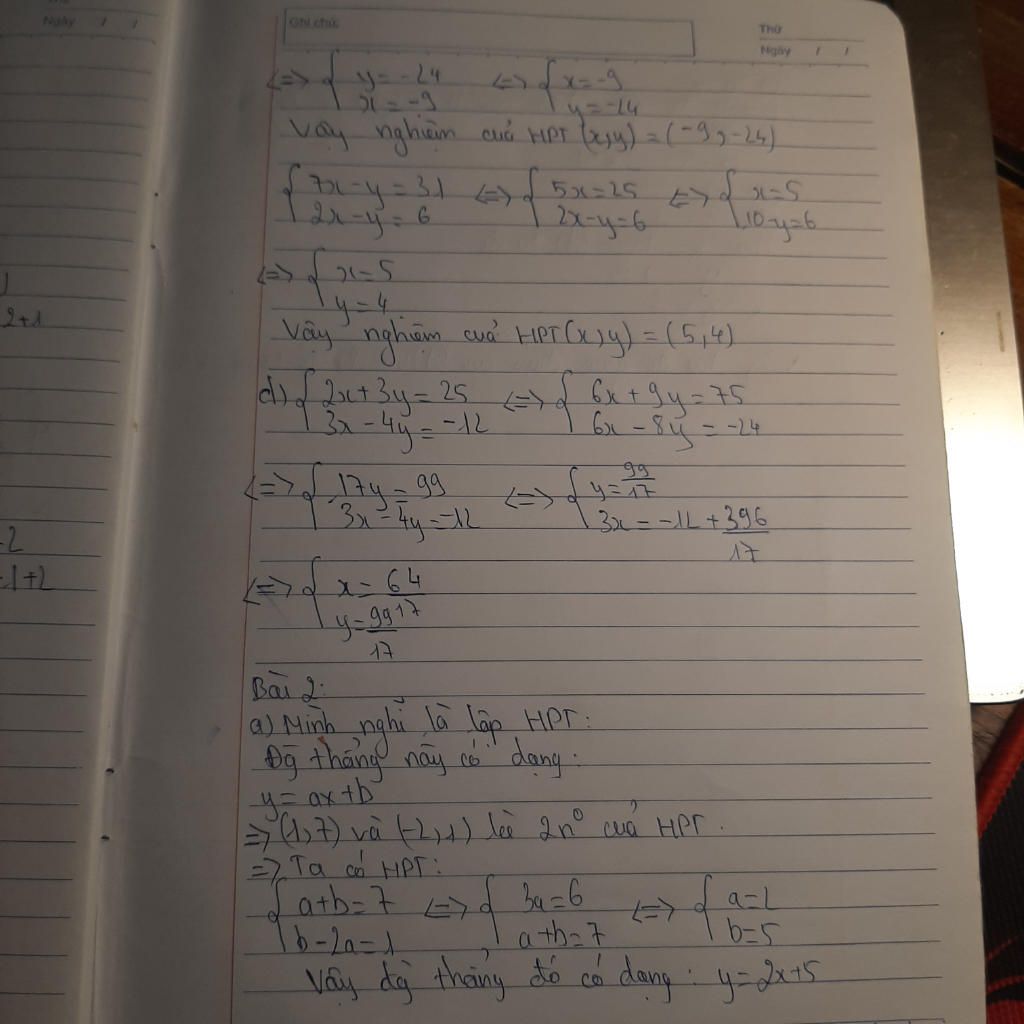 Ngày / /
Ghi chú:
Thứ
Ngày / /
<=> { y = -24 <=> { x = -9
x = -9 y = -24
Vậy nghiệm của HPT (x,y) = (-9,-24)
{ 7x - y = 31 <=> { 5x = 25 <=> { x = 5
2x - y = 6 2x - y = 6 10 - y = 6
<=> { x = 5
y = 4
Vậy nghiệm của HPT (x,y) = (5,4)
d) { 2x + 3y = 25 <=> { 6x + 9y = 75
3x - 4y = -12 6x - 8y = -24
<=> { 17y = 99 <=> { y = 99/17
3x - 4y = -12 3x = -12 + 396/17
<=> { x = 64/17
y = 99/17
Bài 2:
a) Mình nghĩ là lập HPT:
Đg thẳng này có dạng:
y = ax + b
=> (1,7) và (-2,1) là 2 n⁰ của HPT.
=> Ta có HPT:
{ a + b = 7 <=> { 3a = 6 <=> { a = 2
b - 2a = 1 a + b = 7 b = 5
Vậy đg thẳng đó có dạng: y = 2x + 5
2+1
-2
-1+2